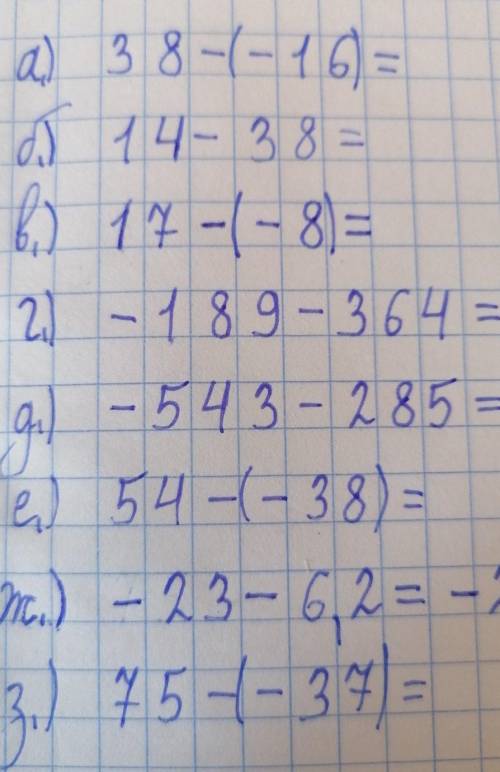 а.) 38-(-16)=
б.) 14-38=
в.) 17-(-8)=
г.) -189-364=
д.) -543-285=
е.) 54-(-38)=
ж.) -23-6,2= -
з.) 75-(-37)=